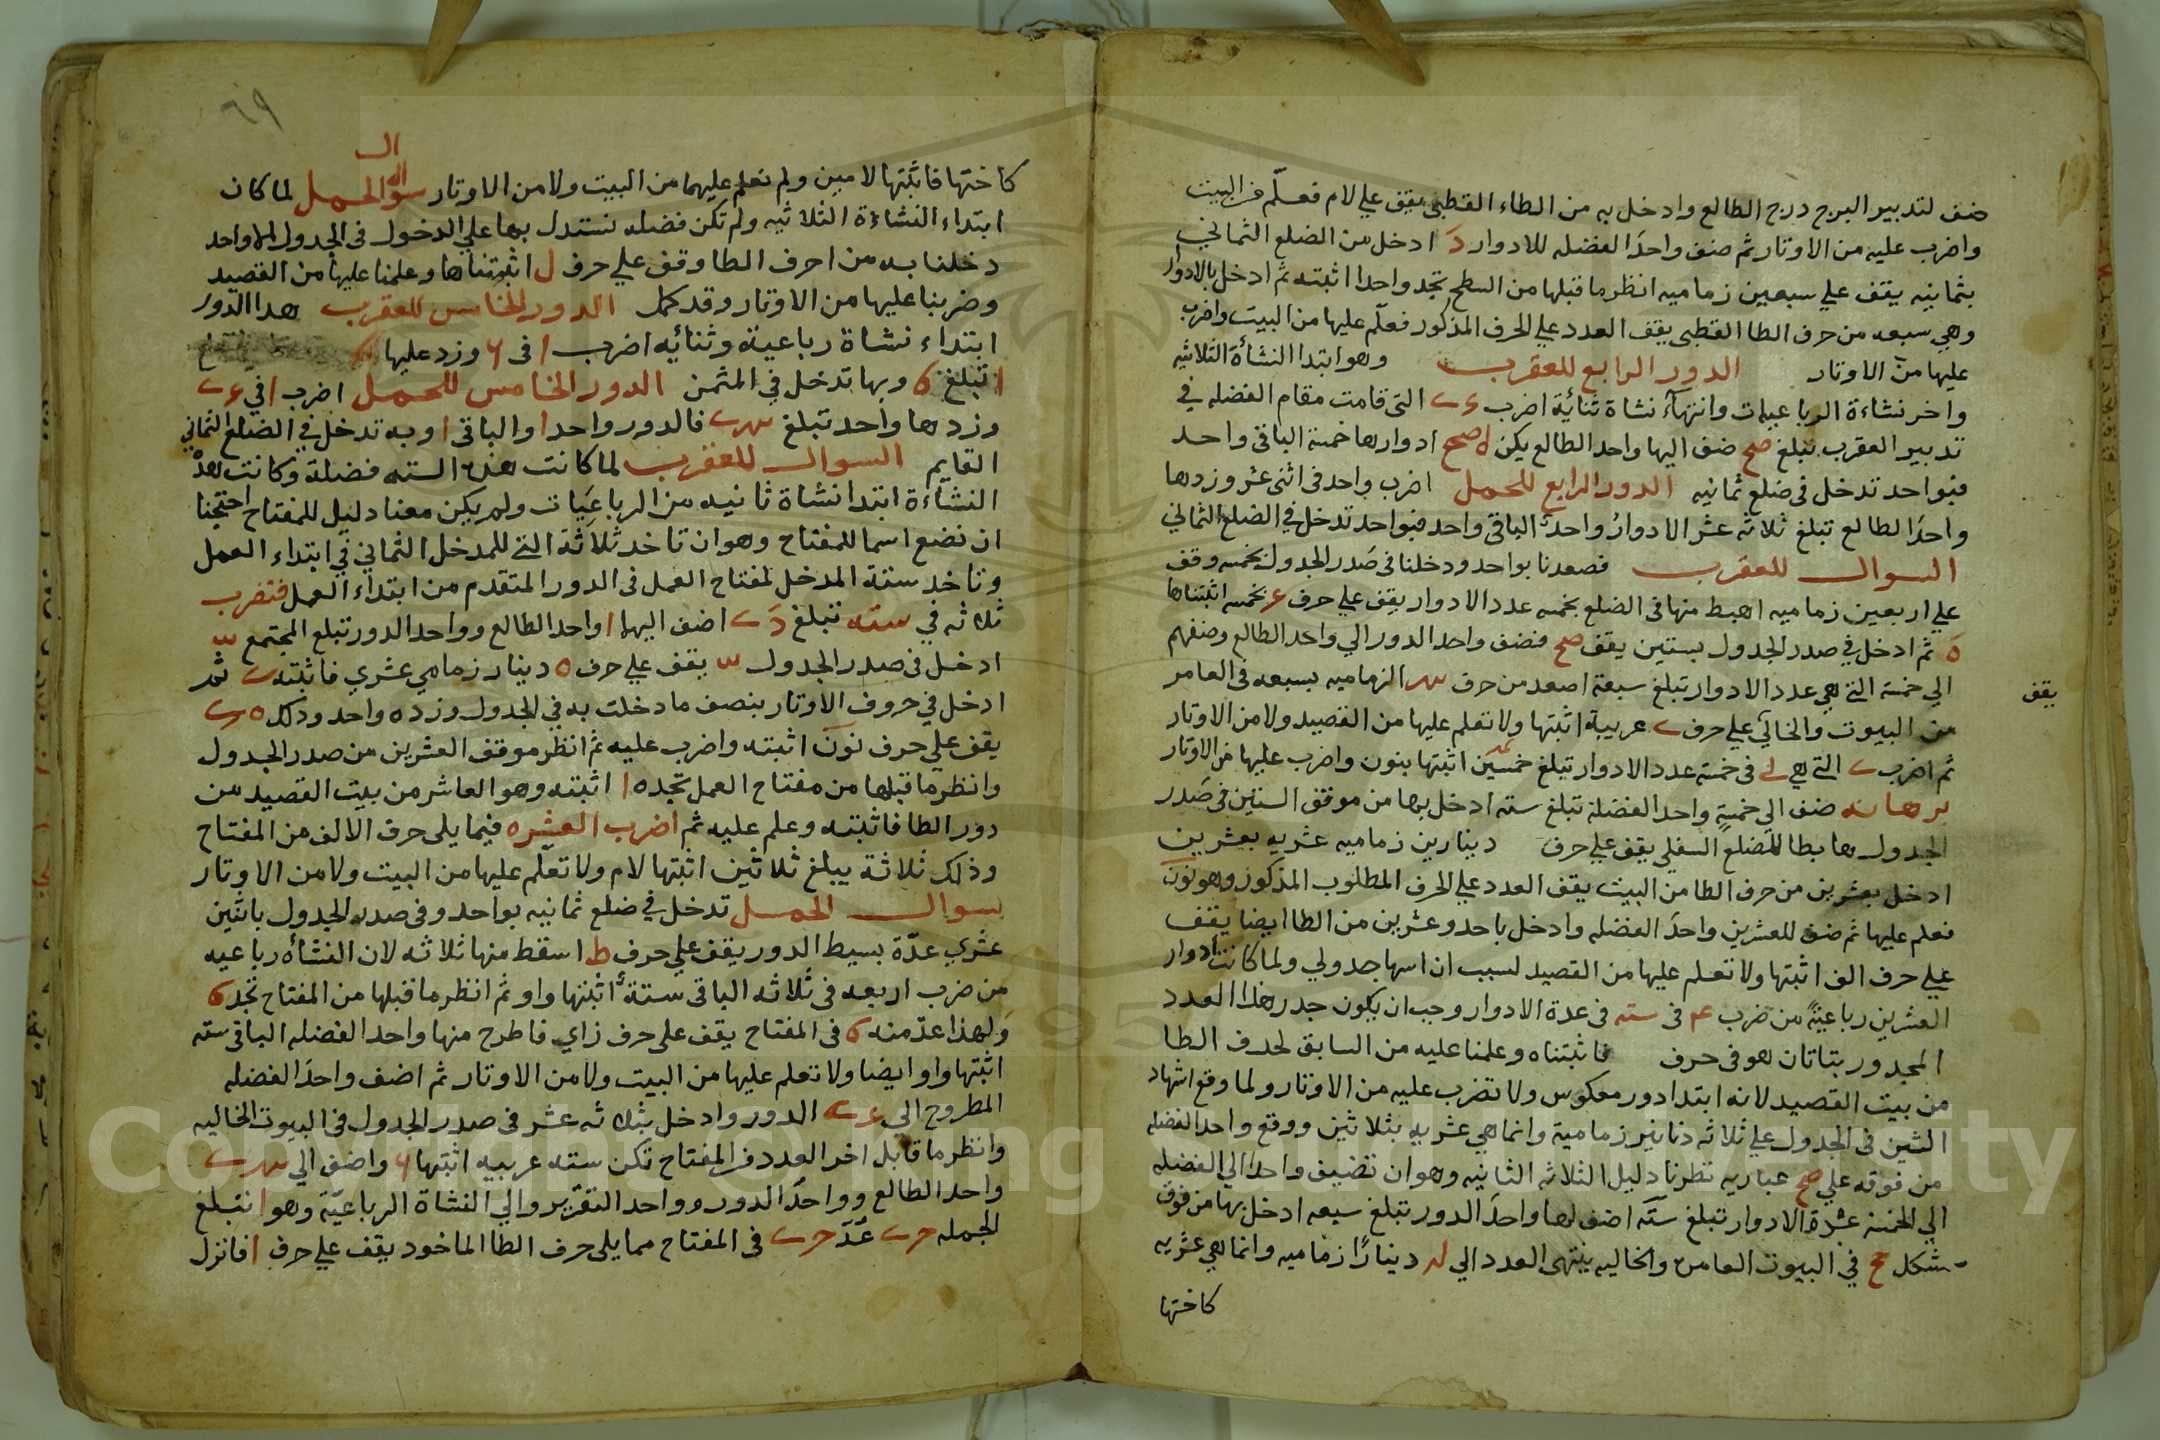 ضف لتدبير البرج درج الطالع وادخل به من الطاء القطبي يقف علي لام فعلّم من البيت
واضرب عليه من الاوتار ثم ضف واحدَا لفضله للادوار دَ ادخل من الضلع الثماني
بثمانيه يقف علي سبعين زماميه انظر ما قبلها من السطح تجد واحدا اثبته ثم ادخل بالادوار
وهي سبعه من حرف الطا القطبي يقف العدد علي الحرف المذكور فعلّم عليها من البيت واضرب
عليها من الاوتار الدور الرابع للعقرب وهو ابتدا النشأة الثلاثيه
واخر نشاءة الرباعيات وانتهآء نشاة ثنائية اضرب التي قامت مقام الفضله في
تدبير العقرب تبلغ صح ضف اليها واحد الطالع يكن ادوارها خمسة الباقي واحد
فبواحد تدخل في ضلع ثمانيه الدور الرابع للحمل اضرب واحد في اثني عشر وزدها
واحدَ الطالع تبلغ ثلاثة عشر الادوارُ واحدٌ الباقي واحد فبواحد تدخل في الضلع الثماني
السوال للعقرب فصعدنا بواحد ودخلنا في صَدر الجدول بخمسه وقف
علي اربعين زماميه اهبط منها في الضلع بخمسه عدد الادوار يقف علي حرف بخمسه اثبتناها
ه ثم ادخل في صدر الجدول بستين يقف صح فضف واحد الدور الي واحد الطالع وضفهم
الي خمسة التي هي عدد الادوار تبلغ سبعة اصعد من حرف الزماميه بسبعه في العامر
يقف
من البيوت والخالي علي حرف عربية اثبتها ولا تعلم عليها من القصيد ولا من الاوتار
ثم اضرب التي هي في خمسة عدد الادوار تبلغ خمسين اثبتها بنون واضرب عليها من الاوتار
برهانه ضف الي خمسةٍ واحد الفضلة تبلغ سته ادخل بها من موقف الستين في صَدر
الجدول هابطا للضلع السفلي يقف علي حرف دينارين زماميه عشريه بعشرين
ادخل بعشرين من حرف الطا من البيت يقف العدد علي الحرف المطلوب المذكور وهو نون
فعلم عليها ثم ضف للعشرين واحدَ الفضله وادخل باحد وعشرين من الطا ايضا يقف
علي حرف الف اثبتها ولا تعلم عليها من القصيد لسبب ان اسها جدولي ولما كانت ادوار
العشرين رباعيةً من ضرب في سته في عدة الادوار وجب ان يكون جدر هذا العدد
المجدور بتاتان هو في حرف فاثبتناه وعلمنا عليه من السابق لحدف الطا
من بيت القصيد لانه ابتدا دور معكوس ولا تضرب عليه من الاوتار ولما وقع اشهاد
الثين في الجدول علي ثلاثه دنانير زمامية وانما هي عشريه بثلاثين ووقع واحد الفضله
من فوقه علي صح عباريه نظرنا دليل الثلاثه الثانيه وهو ان تضيف واحدا الي الفضله
الي الخمسة عشرة الادوار تبلغ ستّه اضف لها واحدَ الدور تبلغ سبعه ادخل بها من فوق
شكل في البيوت العامره والخاليه ينتهى العدد الي دينارًا زماميه وانما هي عشريه
كاختها
٦٩
كاختها فاثبتها لامين ولم تعلم عليهما من البيت ولا من الاوتار سوال الحمل لما كان
ابتداء النشاءة الثلاثيه ولم تكن فضله نستدل بها علي الدخول في الجدول الا واحد
دخلنا به من احرف الطا وقف علي حرف ل اثبتناها وعلمنا عليها من القصيد
وضربنا عليها من الاوتار وقد كمل الدور الخامس للعقرب هدا الدور
ابتداء نشاة رباعية وثنائيه اضرب ا في ٦ وزد عليها
ا تبلغ وبها تدخل في المثمن الدور الخامس للحمل اضرب ا في
وزدها واحد تبلغ فالدور واحد ا والباقي ا وبه تدخل في الضلع الثماني
القايم السوال للعقرب لما كانت هذه الستة فضلة وكانت هذه
النشاءة ابتدا نشاة ثانيه من الرباعيَات ولم يكن معنا دليل للمفتاح احتجنا
ان نضع اسما للمفتاح وهو ان تاخد ثلاثة التي للمدخل الثماني في ابتداء العمل
وتاخد ستة المدخل لمفتاح العمل في الدور المتقدم من ابتداء العمل فتضرب
ثلاثه في سته تبلغ اضف اليها ا واحد الطالع وواحد الدور تبلغ المجتمع
ادخل في صدر الجدول يقف علي حرف ه دينار زمامي عشري فاثبته ثم
ادخل في حروف الاوتار بنصف ما دخلت به في الجدول وزده واحد ودلك
يقف علي حرف نون اثبته واضرب عليه ثم انظر موقف العشرين من صدر الجدول
وانظر ما قبلها من مفتاح العمل تجده ا اثبته وهو العاشر من بيت القصيد من
دور الطا فاثبته وعلم عليه ثم اضرب العشره فيما يلي حرف الالف من المفتاح
وذلك ثلاثة يبلغ ثلاثين اثبتها لام ولا تعلّم عليها من البيت ولا من الاوتار
سوال الحمل تدخل في ضلع ثمانيه بواحد وفي صدر الجدول باثنين
عشري عدّة بسيط الدور يقف علي حرف ط اسقط منها ثلاثه لان النشأه رباعيه
من ضرب اربعه في ثلاثه الباقي ستة اثبتها واو ثم انظر ما قبلها من المفتاح تجد
ولهذا عدّ منه في المفتاح يقف على حرف زاي فاطرح منها واحد الفضله الباقي سته
اثبتها واو ايضا ولا تعلم عليها من البيت ولا من الاوتار ثم اضف واحدَ الفضله
المطروح الي الدور وادخل بثلاثه عشر في صدر الجدول في البيوت الخاليه
وانظر ما قابل اخر العدد من المفتاح تكن سته عربيه اثبتها ٦ واضف الي
واحد الطالع وواحدَ الدور وواحد التقرير والي النشاة الرباعيّة وهو ا تبلغ
الجمله عُدّ في المفتاح مما يلي حرف الطا الماخود يقف علي حرف ا فانزل